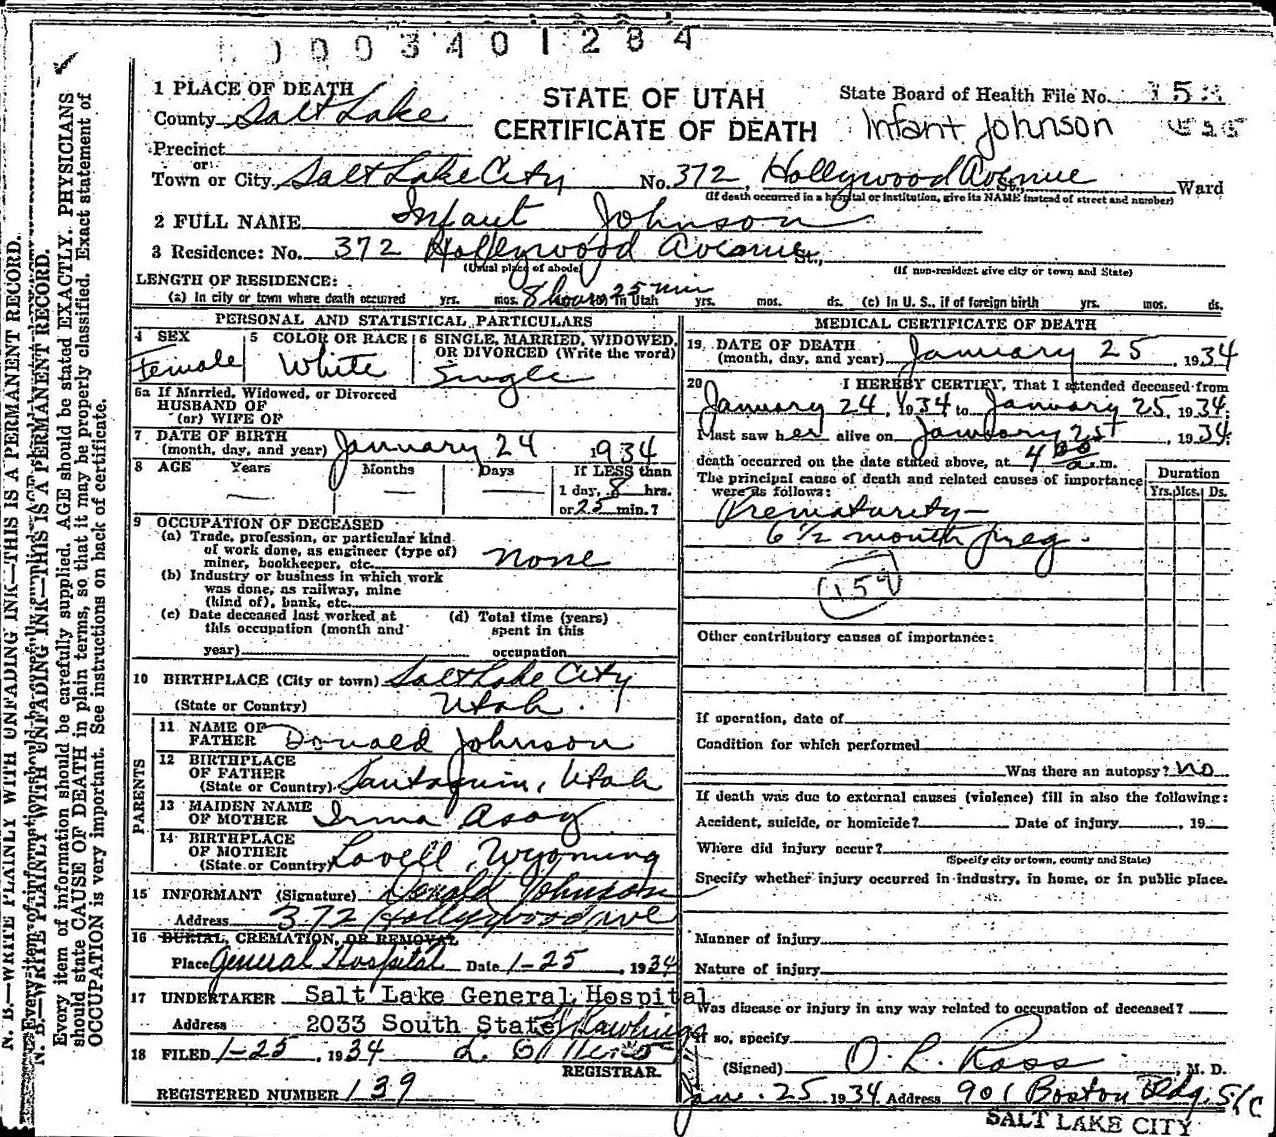 0003401284
1 PLACE OF DEATH
County Salt Lake
STATE OF UTAH
CERTIFICATE OF DEATH
State Board of Health File No.
Infant Johnson
Precinct
or
Town or City Salt Lake City No. 372, Hollywood Avenue St., Ward
(If death occurred in a hospital or institution, give its NAME instead of street and number)
2 FULL NAME Infant Johnson
3 Residence: No. 372 Hollywood Avenue St.,
(Usual place of abode) (If non-resident give city or town and State)
LENGTH OF RESIDENCE:
(a) In city or town where death occurred yrs. mos. 8 hours 25 min in Utah yrs. mos. ds. (c) In U. S., if of foreign birth yrs. mos. ds.
PERSONAL AND STATISTICAL PARTICULARS
4 SEX Female
5 COLOR OR RACE White
6 SINGLE, MARRIED, WIDOWED, OR DIVORCED (Write the word) Single
6a If Married, Widowed, or Divorced
HUSBAND OF
(or) WIFE OF
7 DATE OF BIRTH
(month, day, and year) January 24 1934
8 AGE Years Months Days If LESS than
1 day, 8 hrs.
or 25 min.?
9 OCCUPATION OF DECEASED
(a) Trade, profession, or particular kind
of work done, as engineer (type of)
miner, bookkeeper, etc. none
(b) Industry or business in which work
was done, as railway, mine
(kind of), bank, etc.
(c) Date deceased last worked at
this occupation (month and
year)
(d) Total time (years)
spent in this
occupation
10 BIRTHPLACE (City or town) Salt Lake City
(State or Country) Utah.
PARENTS
11 NAME OF
FATHER Donald Johnson
12 BIRTHPLACE
OF FATHER
(State or Country) Santaquin, Utah
13 MAIDEN NAME
OF MOTHER Irma Asay
14 BIRTHPLACE
OF MOTHER
(State or Country) Lovell, Wyoming
15 INFORMANT (Signature) Donald Johnson
Address 372 Hollywood Ave
16 BURIAL, CREMATION, OR REMOVAL
Place General Hospital Date 1-25, 1934
17 UNDERTAKER Salt Lake General Hospital
Address 2033 South State
18 FILED 1-25, 1934
REGISTRAR.
REGISTERED NUMBER 139
MEDICAL CERTIFICATE OF DEATH
19 DATE OF DEATH
(month, day, and year) January 25, 1934
20 I HEREBY CERTIFY, That I attended deceased from
January 24, 1934 to January 25, 1934.
I last saw her alive on January 25, 1934.
death occurred on the date stated above, at 4 a.m.
The principal cause of death and related causes of importance
were as follows:
Duration
Yrs. Mos. Ds.
Prematurity-
6 1/2 month preg.
159
Other contributory causes of importance:
If operation, date of
Condition for which performed
Was there an autopsy? no
If death was due to external causes (violence) fill in also the following:
Accident, suicide, or homicide? Date of injury , 19
Where did injury occur?
(Specify city or town, county and State)
Specify whether injury occurred in industry, in home, or in public place.
Manner of injury
Nature of injury
Was disease or injury in any way related to occupation of deceased?
If so, specify
(Signed) O. L. Ross, M. D.
Jan. 25 1934 Address 901 Boston Bldg. SLC
SALT LAKE CITY
N. B.—WRITE PLAINLY WITH UNFADING INK—THIS IS A PERMANENT RECORD.
N. B.—WRITE PLAINLY WITH UNFADING INK—THIS IS A PERMANENT RECORD.
Every item of information should be carefully supplied. AGE should be stated EXACTLY. PHYSICIANS
should state CAUSE OF DEATH in plain terms, so that it may be properly classified. Exact statement of
OCCUPATION is very important. See instructions on back of certificate.